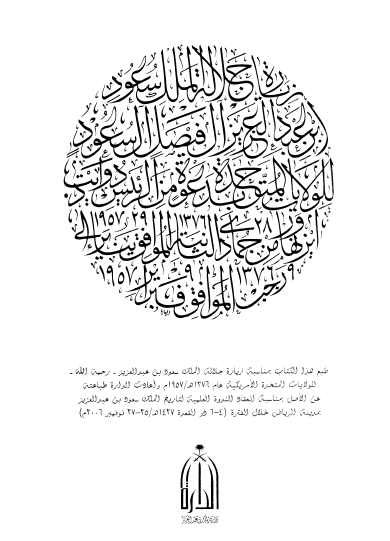 زيارة جلالة الملك سعود
ابن عبد العزيز آل فيصل آل سعود
للولايات المتحدة بدعوة من الرئيس دوايت
ايزنهاور ٢٨ من جمادى الثانية ١٣٧٦ الموافق ٢٩ يناير ١٩٥٧ الى
٩ رجب ١٣٧٦ الموافق ٩ فبراير ١٩٥٧
طبع هذا الكتاب بمناسبة زيارة جلالة الملك سعود بن عبدالعزيز ـ رحمه الله ـ
للولايات المتحدة الأمريكية عام ١٣٧٦هـ/١٩٥٧م وأعادت الدارة طباعته
عن الأصل بمناسبة انعقاد الندوة العلمية لتاريخ الملك سعود بن عبدالعزيز
بمدينة الرياض خلال الفترة (٤-٦ ذو القعدة ١٤٢٧هـ/٢٥-٢٧ نوفمبر ٢٠٠٦م)
الدارة
دارة الملك عبدالعزيز